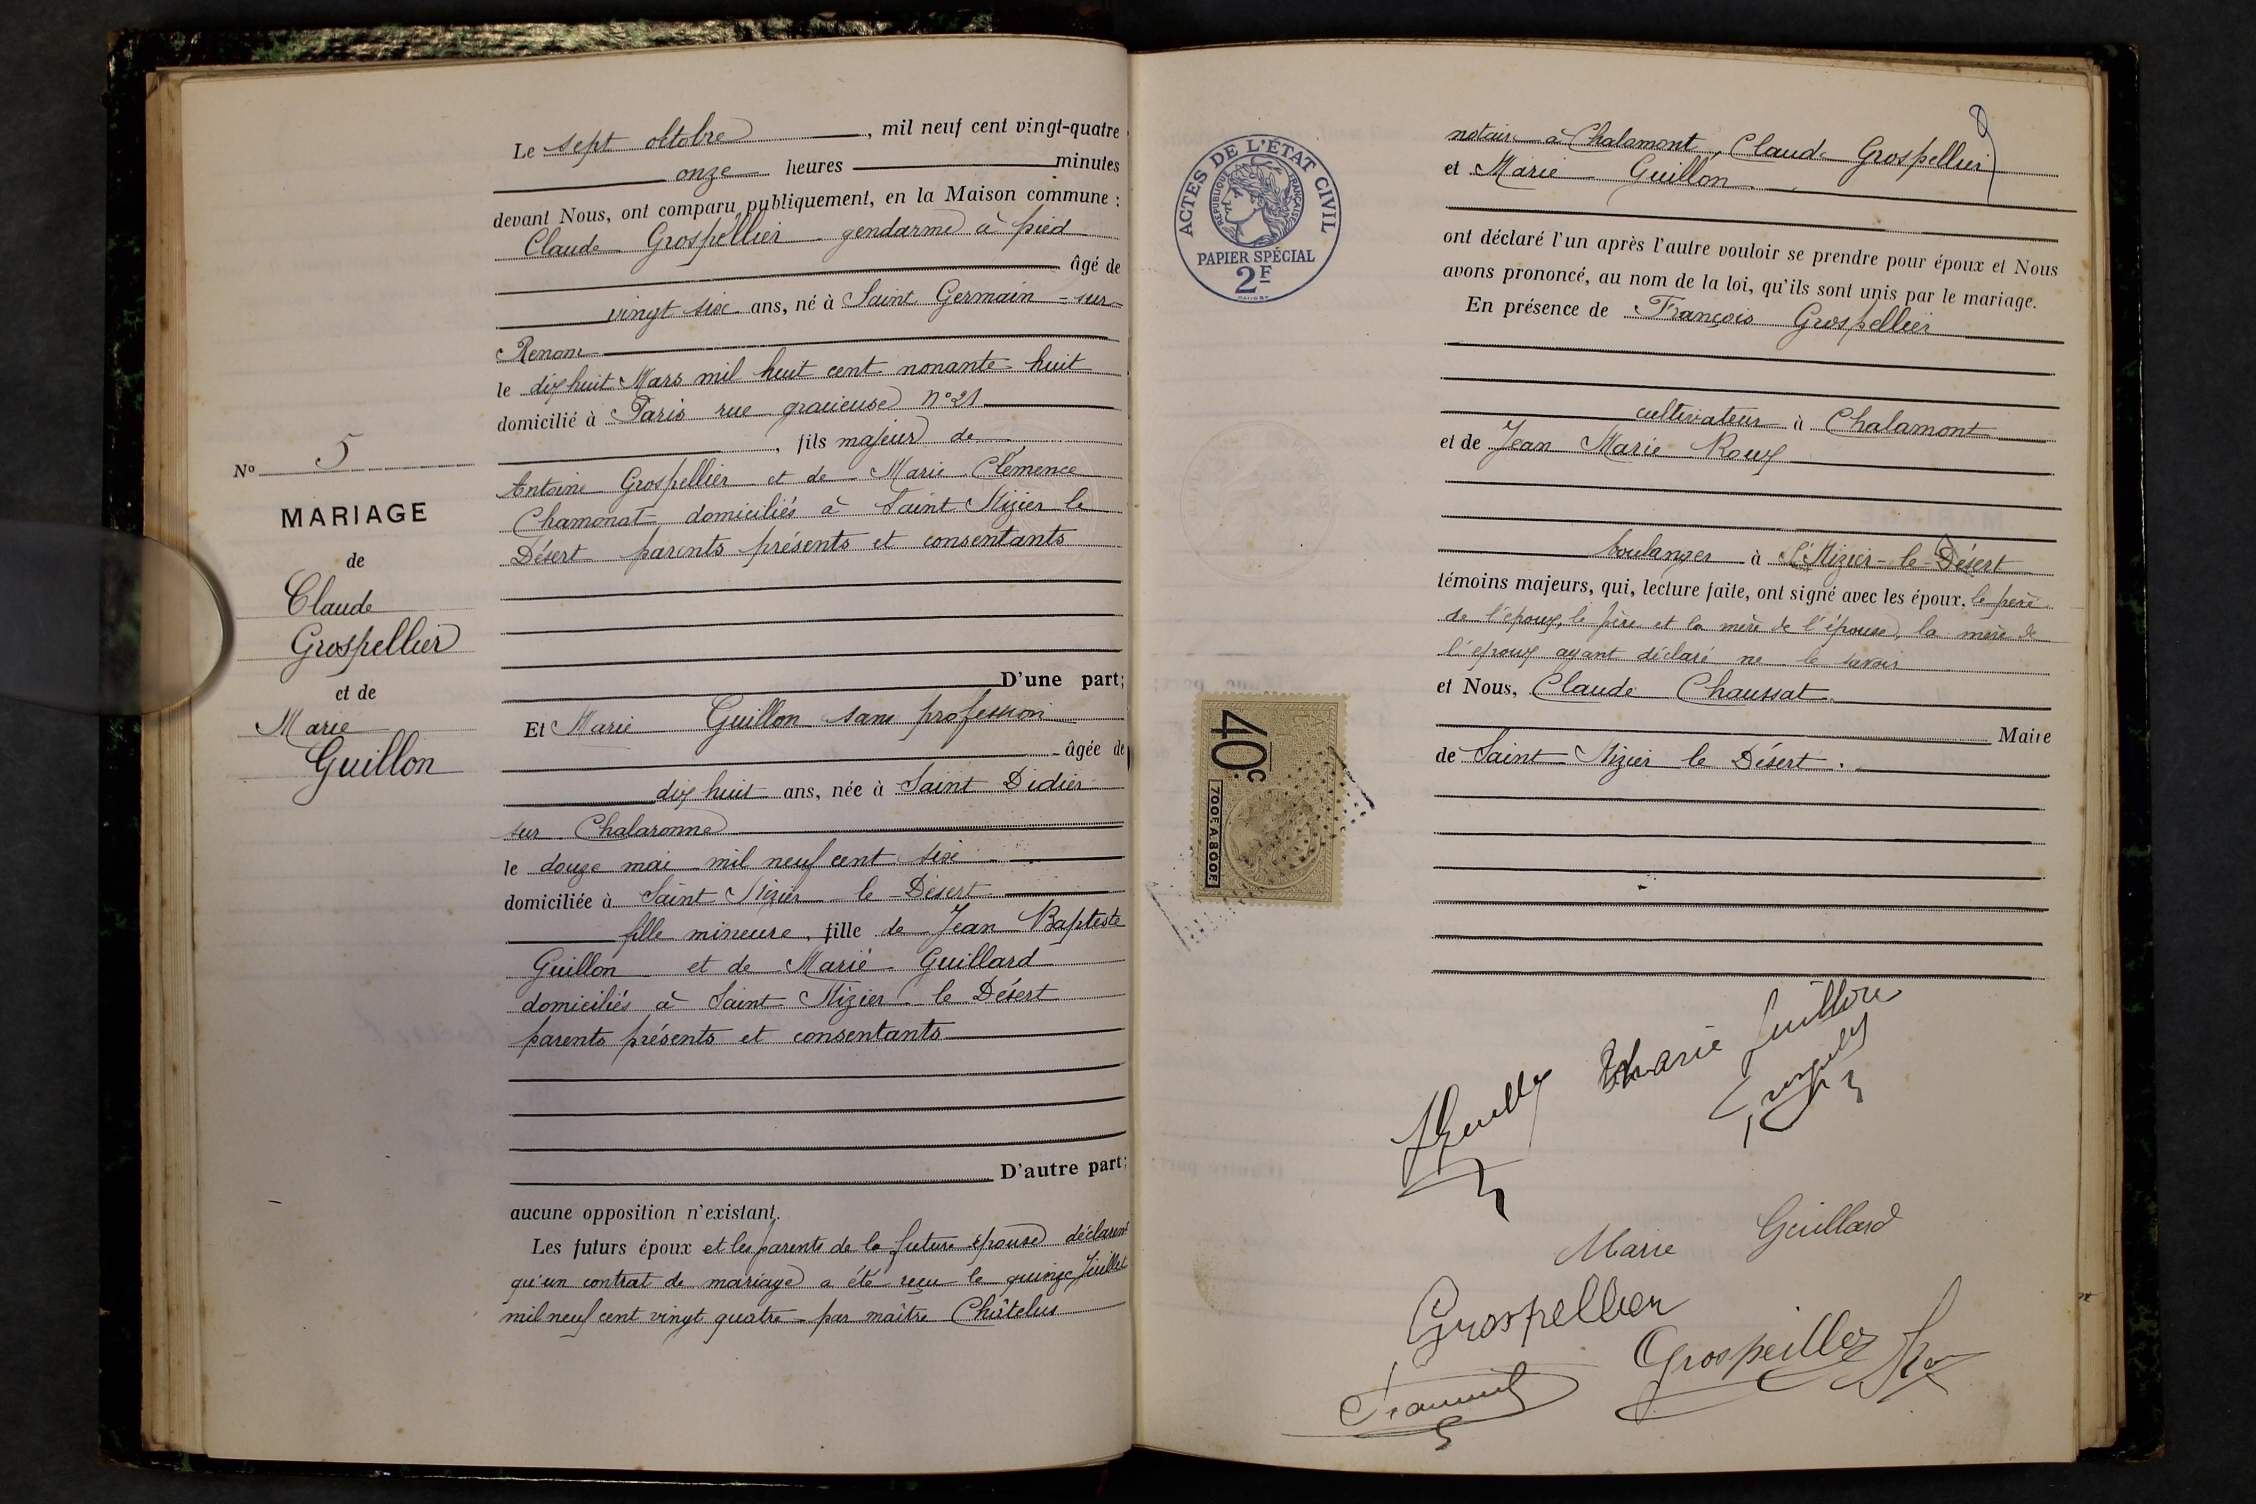 Le sept octobre, mil neuf cent vingt-quatre
onze heures minutes
devant Nous, ont comparu publiquement, en la Maison commune :
Claude Grospellier gendarme à pied
âgé de
vingt six ans, né à Saint Germain-sur-
Renom
le dix huit Mars mil huit cent nonante huit
domicilié à Paris rue gracieuse N°21
, fils majeur de
Antoine Grospellier et de Marie Clémence
Chamonat domiciliés à Saint Nizier le
Désert parents présents et consentants
D'une part;
N° 5
MARIAGE
de
Claude
Grospellier
et de
Marie
Guillon
Et Marie Guillon sans profession
âgée de
dix huit ans, née à Saint Didier
sur Chalaronne
le douze mai mil neuf cent six
domiciliée à Saint Nizier le Désert
fille mineure, fille de Jean Baptiste
Guillon et de Marie Guillard
domiciliés à Saint Nizier le Désert
parents présents et consentants
D'autre part;
aucune opposition n'existant.
Les futurs époux et les parents de la future épouse déclarent
qu'un contrat de mariage a été reçu le quinze Juillet
mil neuf cent vingt quatre par maître Châtelus
ACTES DE L'ÉTAT CIVIL
RÉPUBLIQUE FRANÇAISE
PAPIER SPÉCIAL
2F
40c
700F. A 800F.
notaire à Chalamont, Claude Grospellier
et Marie Guillon
ont déclaré l'un après l'autre vouloir se prendre pour époux et Nous
avons prononcé, au nom de la loi, qu'ils sont unis par le mariage.
En présence de François Grospellier
cultivateur à Chalamont
et de Jean Marie Roux
boulanger à St Nizier-le-Désert
témoins majeurs, qui, lecture faite, ont signé avec les époux, le père
de l'époux, le père et la mère de l'épouse, la mère de
l'époux ayant déclaré ne le savoir
et Nous, Claude Chaussat
Maire
de Saint Nizier le Désert.
Marie Guillon
Marie Guillard
Grospellier
Grospeiller